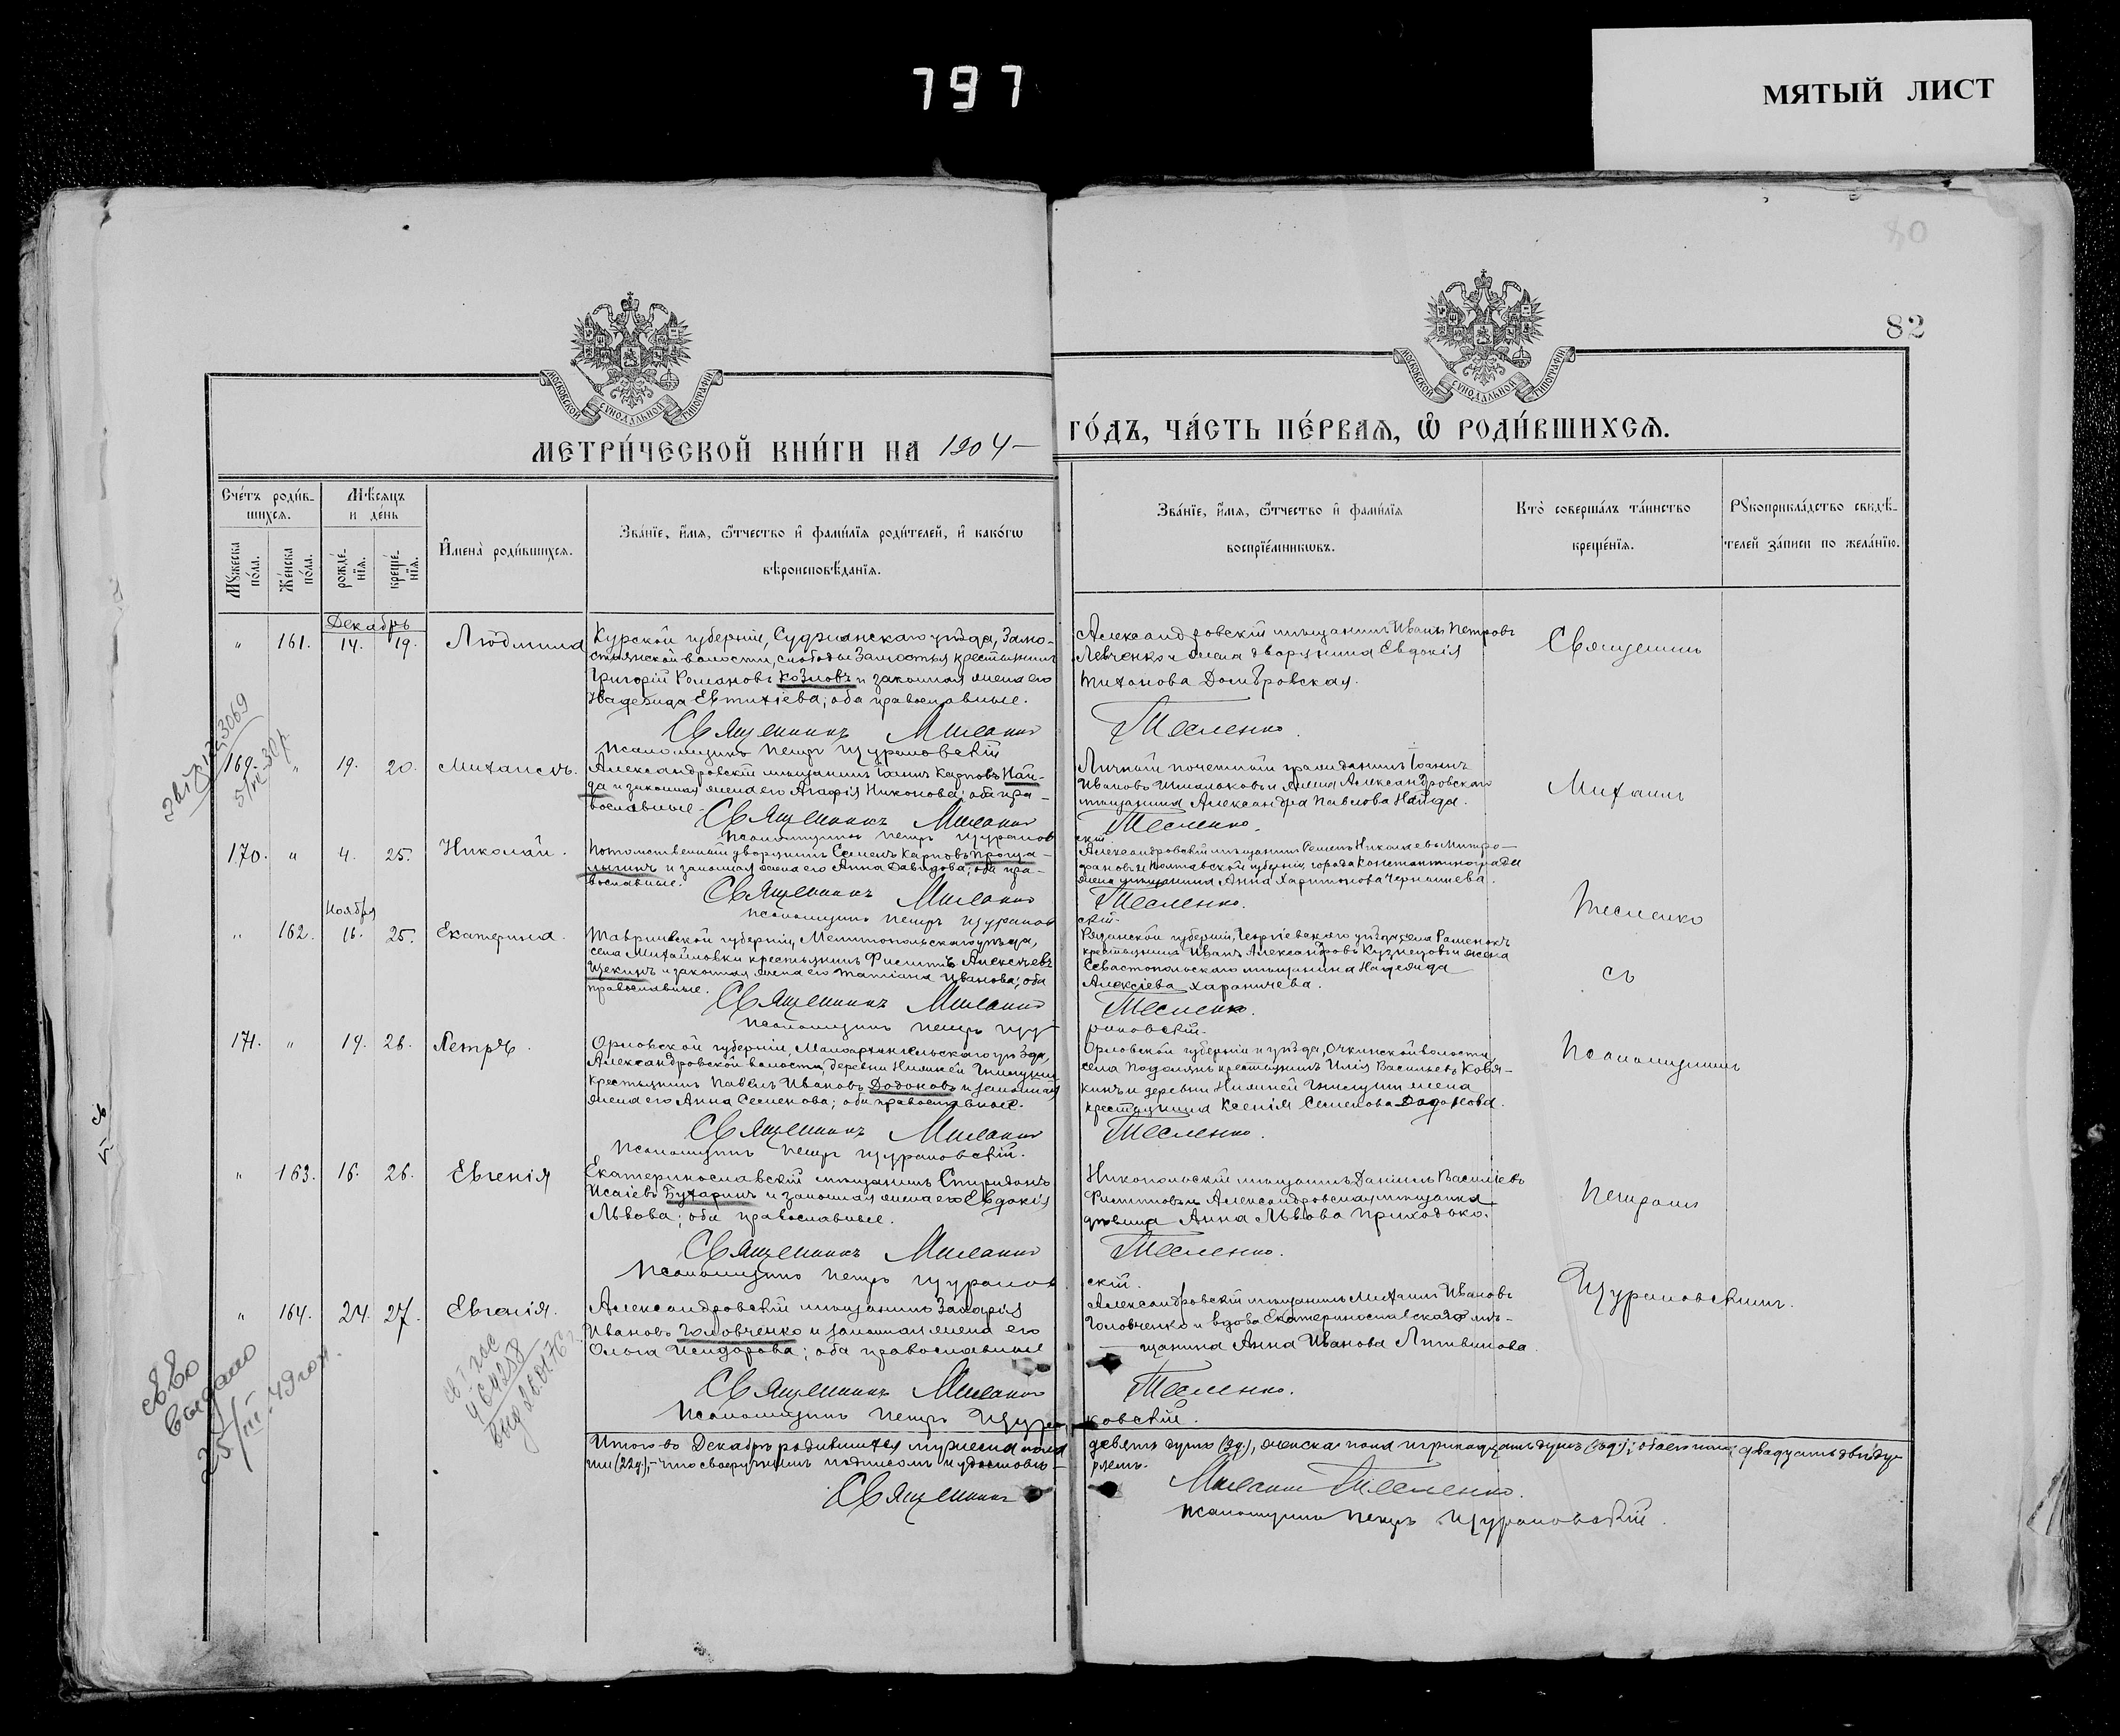 797
МЯТЫЙ ЛИСТ
80
82
МОСКОВСКОЙ СѴНОДАЛЬНОЙ ТИПОГРАФІИ
МОСКОВСКОЙ СѴНОДАЛЬНОЙ ТИПОГРАФІИ
МЕТРИ́ЧЕСКОЙ КНИ́ГИ НА 1904 –
ГО́ДЪ, ЧА́СТЬ ПЕ́РВАѦ, Ѽ РОДИ́ВШИХСѦ.
Сче́тъ роди́в-
шихся.
Мѣ́сяцъ
и де́нь
Мꙋ́жеска по́ла.
Же́нска по́ла.
рожде́нїя.
креще́нїя.
И́мена̀ роди́вшихся.
Зва́нїе, и́мя, ѻ҆́тчество и҆ фами́лїя роди́телей, и҆ како́гѡ
вѣроисповѣ́данїя.
Зва́нїе, и́мя, ѻ҆́тчество и҆ фами́лїя
воспрїе́мникѡвъ.
Кто̀ соверша́лъ та́инство
креще́нїя.
Рꙋкоприкла́дство свидѣ́-
телей за́писи по жела́нїю.
Декабрь
" 161. 14. 19. Людмила
Курской губерніи, Суджанскаго уѣзда, Замо-
стянской волости, слободы Замостья крестьянинъ
Григорій Романовъ Козловъ и законная жена его
Надежда Евтихіева; оба православные.
Священникъ Михаилъ
Псаломщикъ Петръ Цурановскій
Александровскій мѣщанинъ Иванъ Петровъ
Левченко и жена дворянина Евдокія
Тихонова Домбровская.
Тесленко.
Священникъ
169. " 19. 20. Михаилъ.
Александровскій мѣщанинъ Іоаннъ Карповъ Най-
да и законная жена его Агафія Никонова; оба пра-
вославные.
Священникъ Михаилъ
Псаломщикъ Петръ Цуранов
Личный почетный гражданинъ Іоаннъ
Ивановъ Шпалоковъ и жена Александровскаго
мѣщанина Александра Павлова Найда.
Тесленко.
скій
Михаилъ
170. " 4. 25. Николай.
Потомственный дворянинъ Семенъ Карповъ
и законная жена его Анна Давидова; оба пра-
вославные.
Священникъ Михаилъ
Псаломщикъ Петръ Цуранов
Александровскій мѣщанинъ Романъ Николаевъ Митро-
фановъ и Полтавской губерніи города Константинограда
жена мѣщанина Анна Харитонова Чернышева.
Тесленко.
скій.
Тесленко
Ноября
" 162. 16. 25. Екатерина.
Таврической губерніи, Мелитопольскаго уѣзда,
села Михайловки крестьянинъ Филиппъ Алексѣевъ
Щекинъ и законная жена его Татіана Иванова; оба
православные.
Священникъ Михаилъ
Псаломщикъ Петръ Цу-
крестьянинъ Иванъ Александровъ Кузнецовъ и жена
Севастопольскаго мѣщанина Надежда
Алексіева Хараничева.
Тесленко.
рановскій.
съ
171. " 19. 26. Петръ.
Орловской губерніи, Малоархангельскаго уѣзда,
Александровской волости, деревни Нижней Гнилуши
крестьянинъ Павелъ Ивановъ Додоновъ и законная
жена его Анна Семенова; оба православные.
Священникъ Михаилъ
Псаломщикъ Петръ Цурановскій.
Орловской губерніи и уѣзда, Очкинской волости,
села Подолянъ крестьянинъ Илія Васильевъ Ковя-
кинъ и деревни Нижней Гнилуши жена
крестьянина Ксенія Семенова Додонова.
Тесленко.
Псаломщикомъ
" 163. 16. 26. Евгенія
Екатеринославскій мѣщанинъ Спиридонъ
Исаіевъ Бухаринъ и законная жена его Евдокія
Львова; оба православные.
Священникъ Михаилъ
Псаломщикъ Петръ Цуранов
Никопольскій мѣщанинъ Даніилъ Василіевъ
Филипповъ и Александровская мѣщанка
дѣвица Анна Львова Приходько.
Тесленко.
скій.
Петромъ
" 164. 24. 27. Евгенія.
Александровскій мѣщанинъ Захарія
Ивановъ Головченко и законная жена его
Ольга Исидорова; оба православные
Священникъ Михаилъ
Псаломщикъ Петръ Цура
Александровскій мѣщанинъ Михаилъ Ивановъ
Головченко и вдова Екатеринославскаго мѣ-
щанина Анна Иванова Литвинова.
Тесленко.
новскій.
Цурановскимъ.
св-во
выдано
25/III-49 год.
Итого въ Декабрѣ родившихся мужеска пола
девять душъ (9д.), женска пола тринадцать душъ (13д.); обоего пола двадцать двѣ ду-
ши (22д.), – что своеручнымъ подписомъ и удостовѣ-
ряемъ.
Священникъ
Михаилъ Тесленко.
Псаломщикъ Петръ Цурановскій.